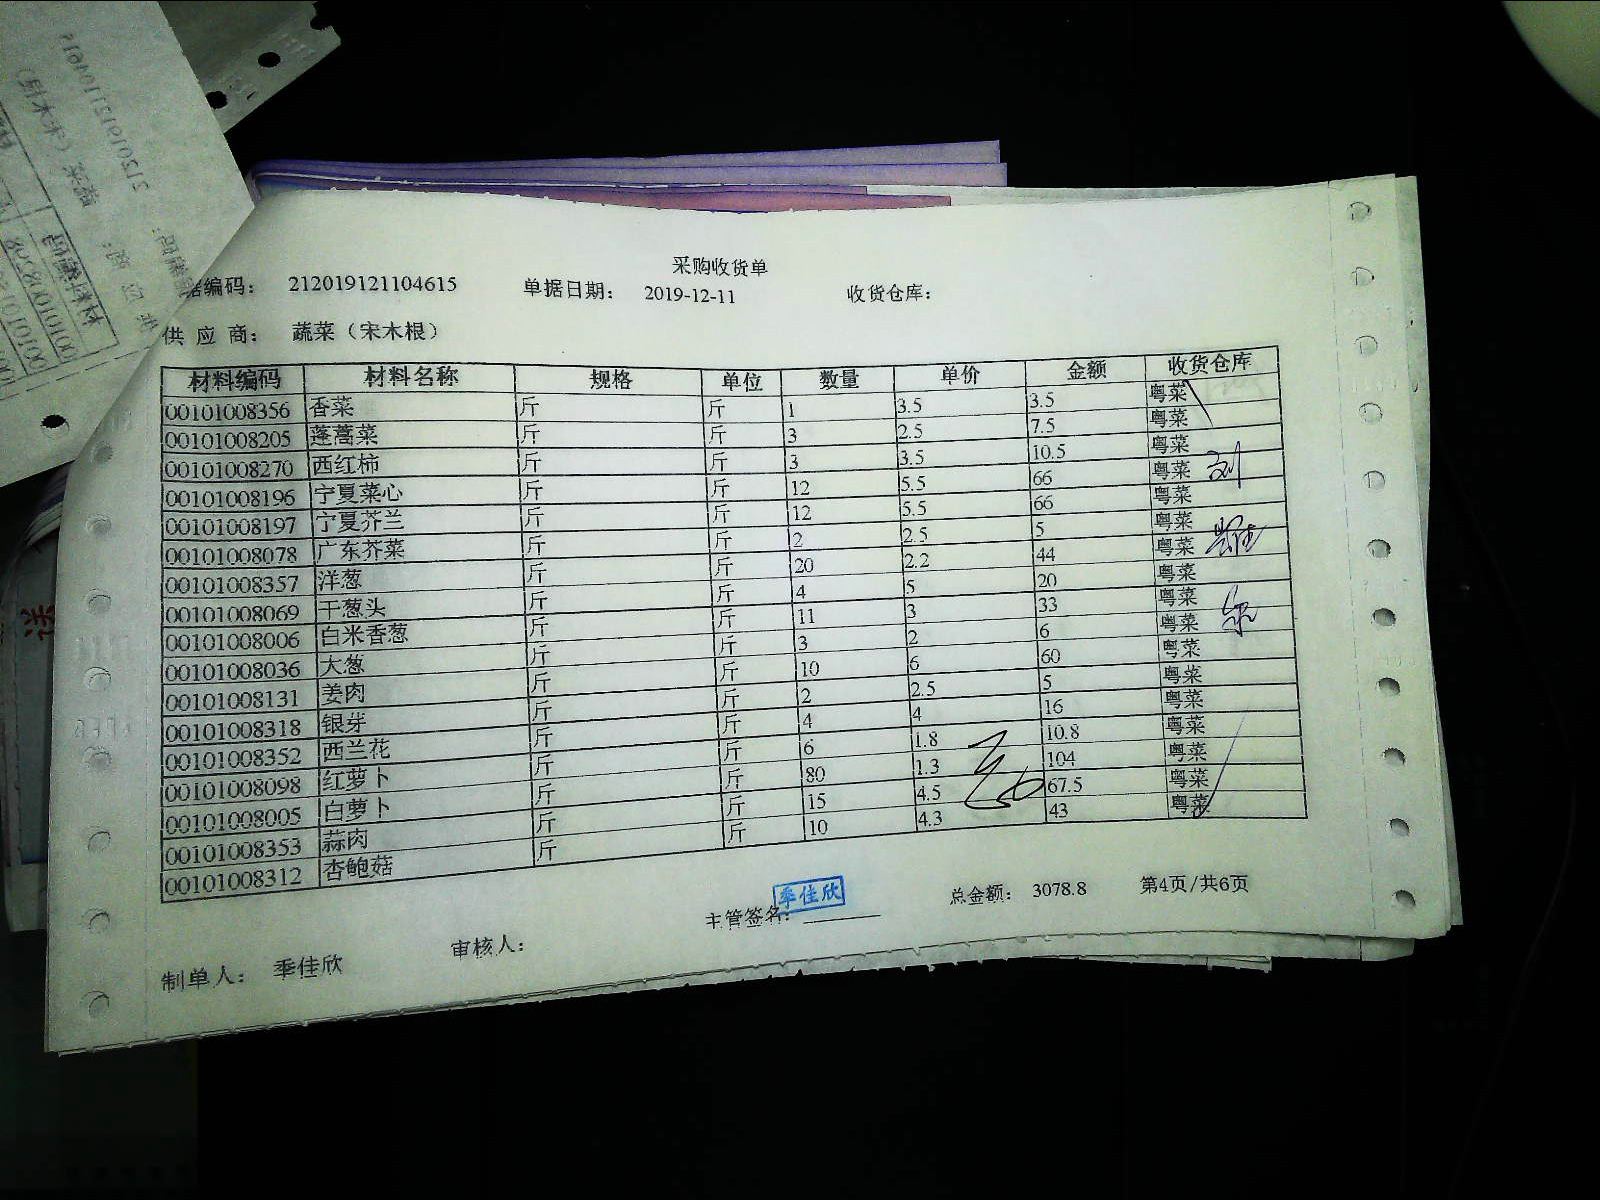 采购收货单
据编码： 212019121104615 单据日期： 2019-12-11 收货仓库：
供 应 商： 蔬菜（宋木根）
材料编码 材料名称 规格 单位 数量 单价 金额 收货仓库
00101008356 香菜 斤 斤 1 3.5 3.5 粤菜
00101008205 蓬蒿菜 斤 斤 3 2.5 7.5 粤菜
00101008270 西红柿 斤 斤 3 3.5 10.5 粤菜
00101008196 宁夏菜心 斤 斤 12 5.5 66 粤菜
00101008197 宁夏芥兰 斤 斤 12 5.5 66 粤菜
00101008078 广东芥菜 斤 斤 2 2.5 5 粤菜
00101008357 洋葱 斤 斤 20 2.2 44 粤菜
00101008069 干葱头 斤 斤 4 5 20 粤菜
00101008006 白米香葱 斤 斤 11 3 33 粤菜
00101008036 大葱 斤 斤 3 2 6 粤菜
00101008131 姜肉 斤 斤 10 6 60 粤菜
00101008318 银芽 斤 斤 2 2.5 5 粤菜
00101008352 西兰花 斤 斤 4 4 16 粤菜
00101008098 红萝卜 斤 斤 6 1.8 10.8 粤菜
00101008005 白萝卜 斤 斤 80 1.3 104 粤菜
00101008353 蒜肉 斤 斤 15 4.5 67.5 粤菜
00101008312 杏鲍菇 斤 斤 10 4.3 43 粤菜
季佳欣
主管签名： 总金额： 3078.8 第4页/共6页
制单人： 季佳欣 审核人：